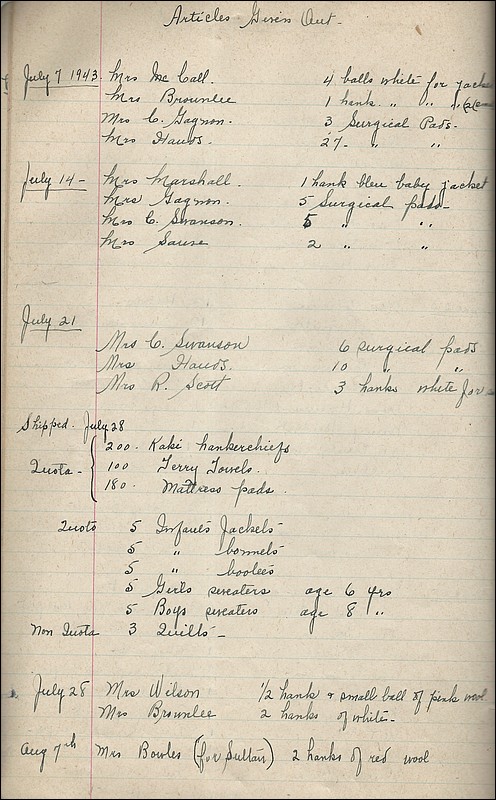 Articles Given Out -
July 7 1943 Mrs Mc Call. 4 balls white for jacke
Mrs Brownlee 1 hank " " "
Mrs C. Gagnon. 3 Surgical Pads.
Mrs Hauds. 27 - " "
July 14 - Mrs Marshall. 1 hank bleu baby jacket
Mrs Gagnon. 5 Surgical pads -
Mrs C. Swanson. 5 " "
Mrs 2 " "
July 21
Mrs C. Swanson 6 surgical pads
Mrs Hauds. 10 " "
Mrs R. Scott 3 hanks white for
Shipped. July 28
200. Kaki hankerchiefs
Quota - 100 Terry Towels.
180. Mattress pads.
Quota 5 Infants Jackets
5 " bonnets
5 " bootees
5 Girls sweaters age 6 yrs
5 Boys sweaters age 8 "
Non Quota 3 Quilts -
July 28 Mrs Wilson 1/2 hank & small ball of pink wool
Mrs Brownlee 2 hanks of white -
Aug 7th Mrs Bowles (for Sultan) 2 hanks of red wool